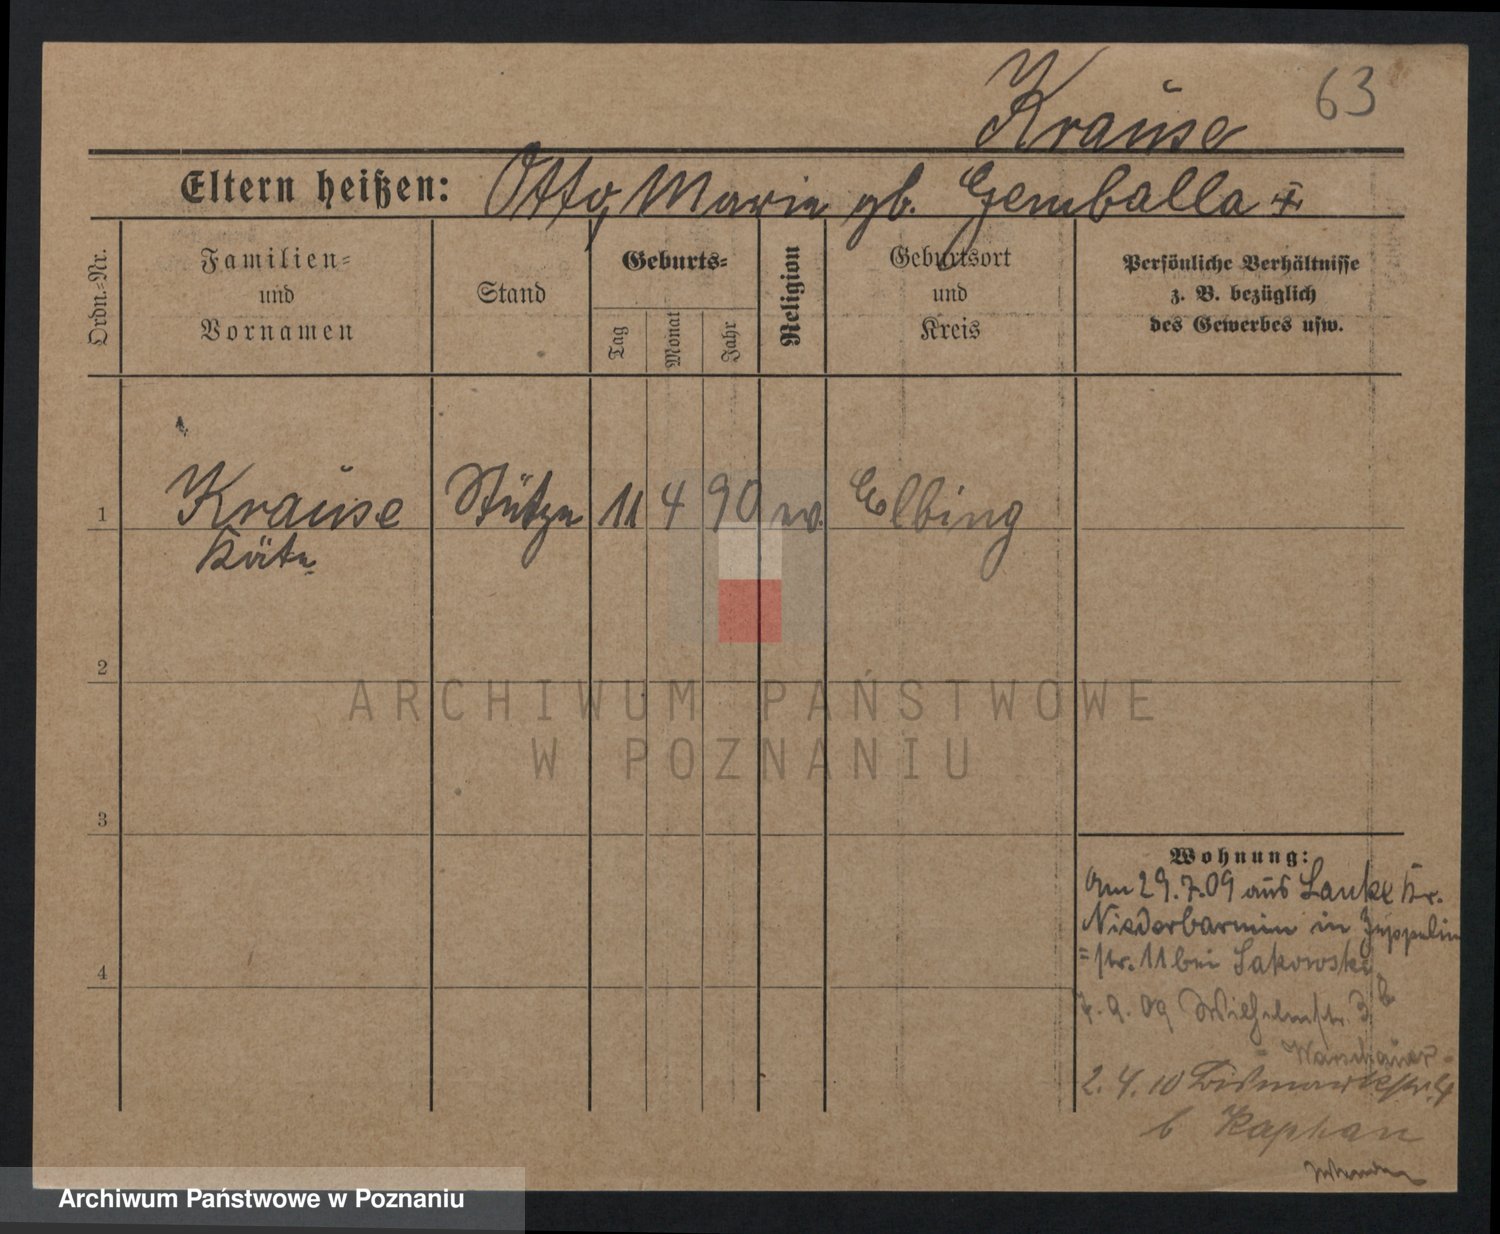 63
Krause
Eltern heißen: Otto, Marie gb. Gemballa +
Ordn.-Nr.
Familien-
und
Vornamen
Stand
Geburts-
Tag
Monat
Jahr
Religion
Geburtsort
und
Kreis
Persönliche Verhältnisse
z. B. bezüglich
des Gewerbes usw.
1 Krause Stütze 11 4 90 ev. Elbing
Käte
2
3
4
Wohnung:
Am 29.7.09 aus Lanke Kr.
Niederbarnim in Zeppelin
=str. 11 bei Sakowski
7.9.09 Wilhelmstr. 3 b
Warschauer
2.4.10 Bismarckstr. 4
b Kaphan
ARCHIWUM PAŃSTWOWE
W POZNANIU
Archiwum Państwowe w Poznaniu